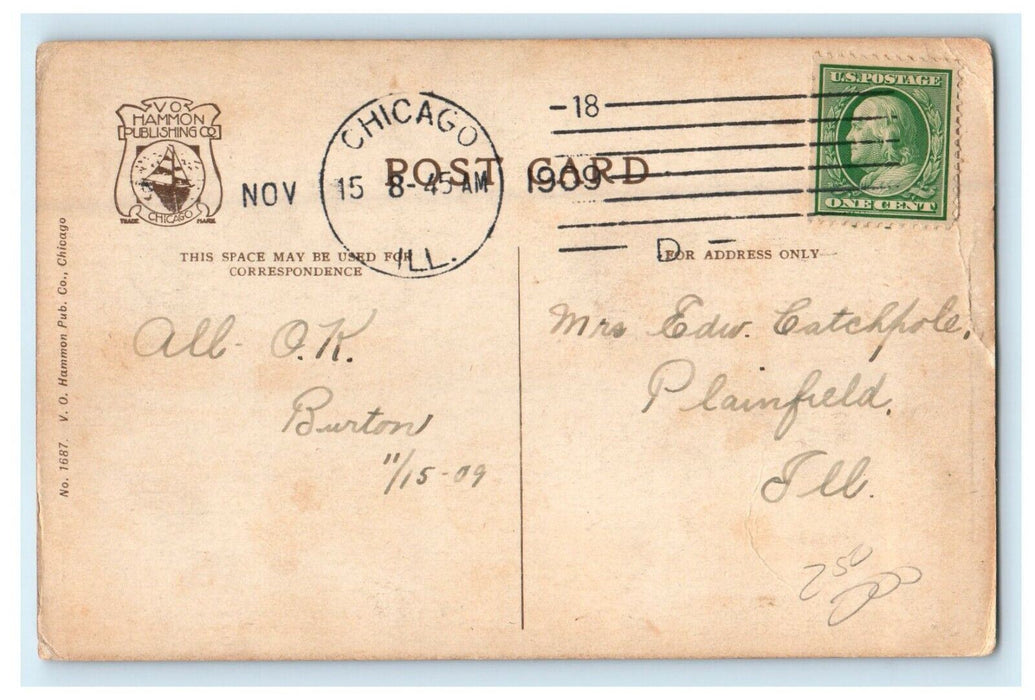 V O
HAMMON
PUBLISHING CO
TRADE CHICAGO MARK
CHICAGO
ILL.
NOV 15 8-45 AM 1909
-18
D -
U.S. POSTAGE
ONE CENT
POST CARD
THIS SPACE MAY BE USED FOR
CORRESPONDENCE
FOR ADDRESS ONLY
No. 1687. V. O. Hammon Pub. Co., Chicago
All - O.K.
Burton
11/15-09
Mrs Edw. Catchpole,
Plainfield,
Ill.
250